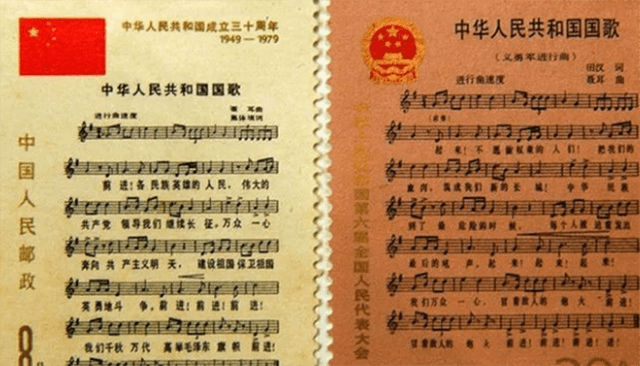 中华人民共和国成立三十周年
1949—1979
中华人民共和国国歌
进行曲速度
聂 耳 曲
集体填词
前进!各民族英雄的人民,伟大的
共产党 领导我们继续长征。万众一心
奔向 共产主义明天,建设祖国保卫祖国
英勇地斗 争。前进!前进!前进!
我们千秋 万代 高举毛泽东 旗帜 前进!
中国人民邮政
8
中华人民共和国国歌
(义勇军进行曲)
田汉 词
进行曲速度 聂耳 曲
(前奏)
起来!不愿做奴隶的人们!把我们的
血肉,筑成我们 新的 长城!中华 民族
到了 最 危险的时候,每个人被迫着发出
最后的吼 声。起来!起来!起来!
我们万众 一心,冒着敌人的 炮火 前进!
冒着敌人的 炮火 前进!前进!前进!进!
国第六届全国人民代表大会